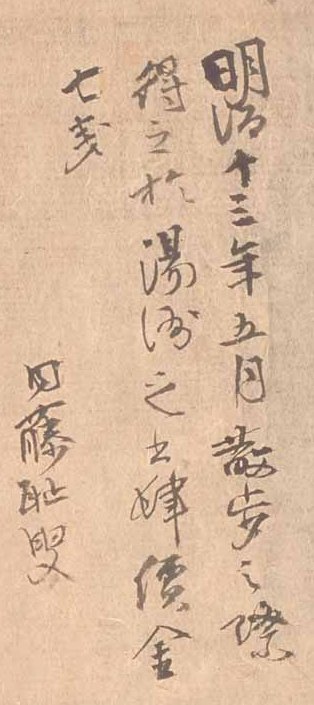 明治十三年五月散歩之際
得之於湯島之書肆價金
七戔
内藤耻叟